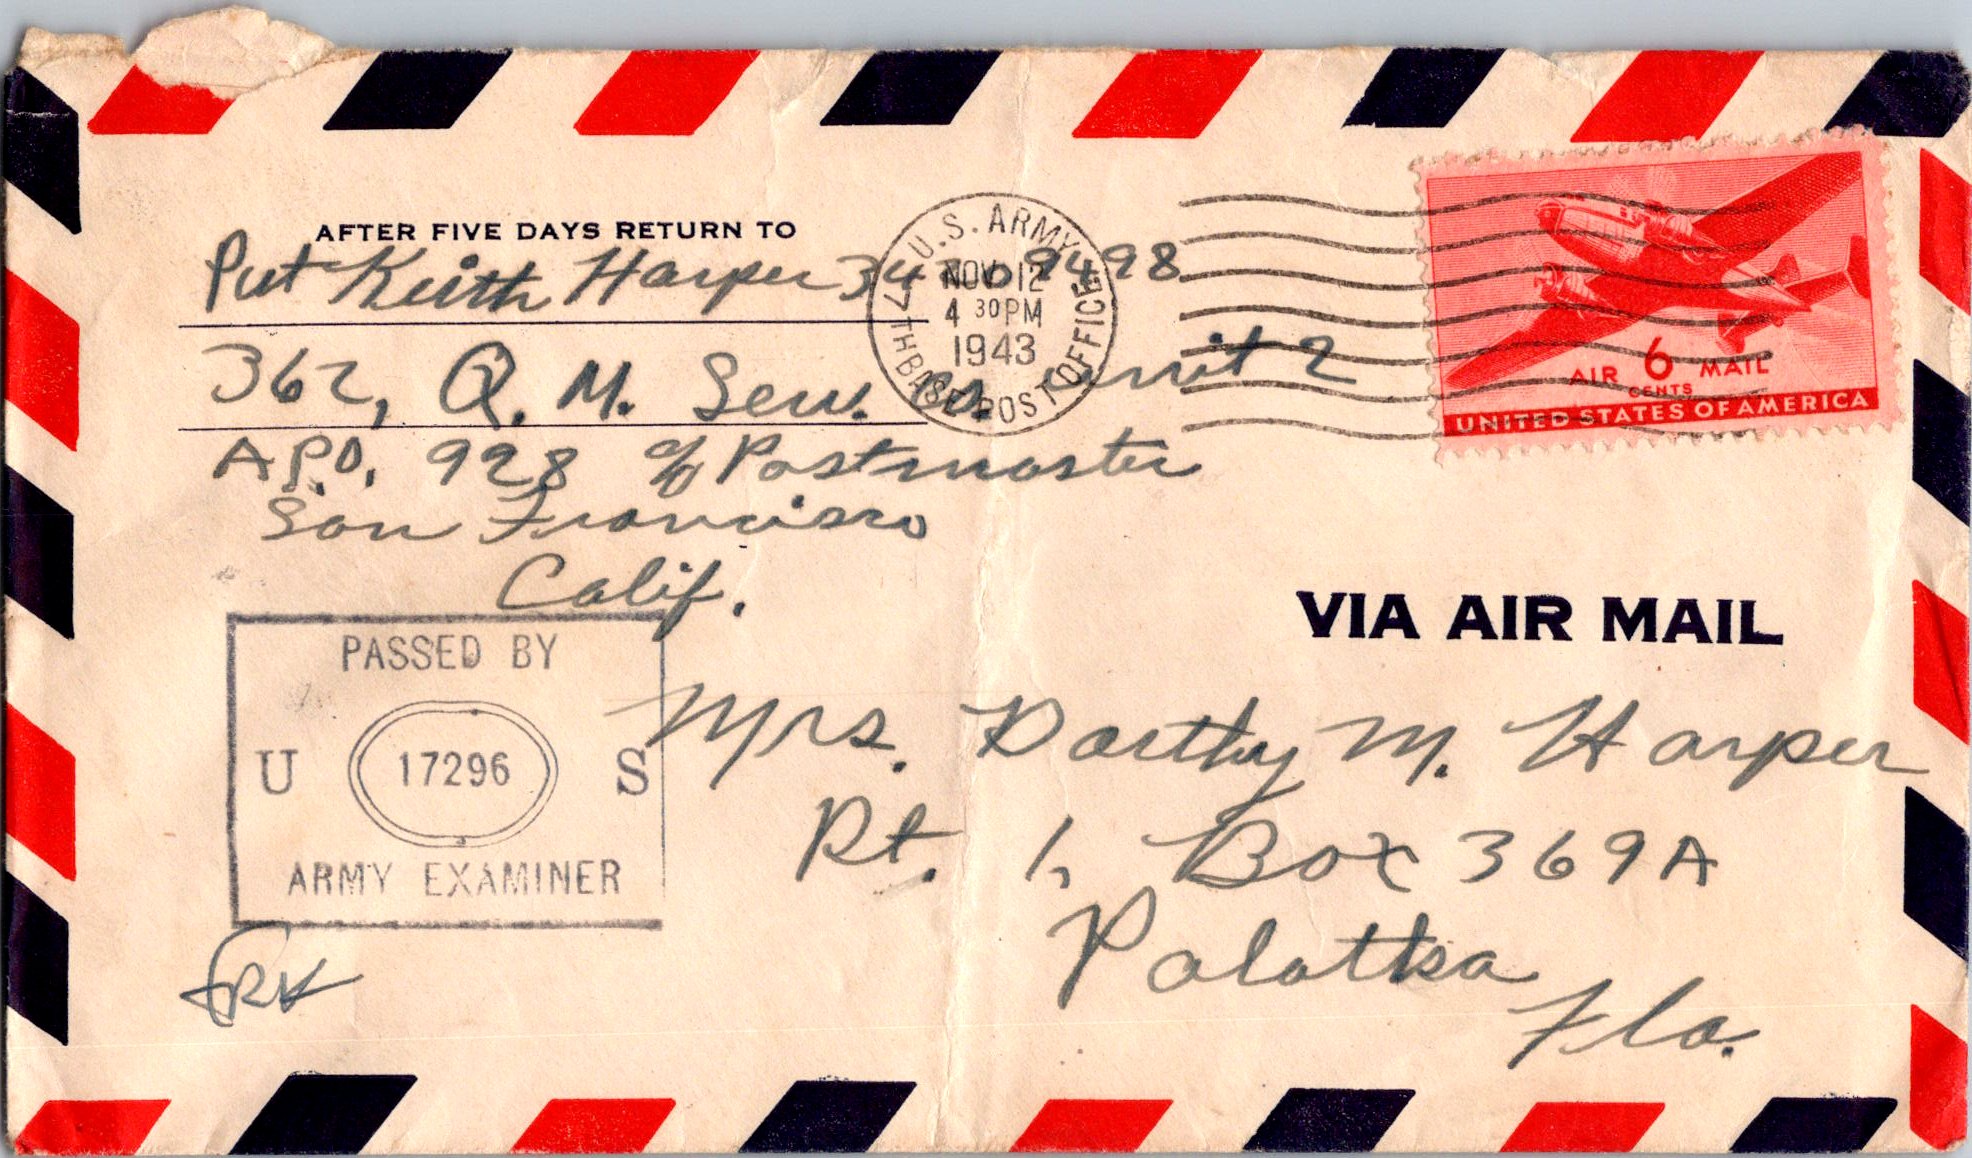 AFTER FIVE DAYS RETURN TO
Pvt Keith Harper
362, Q. M. Serv. Co. unit 2
A.P.O. 928 c/o Postmaster
San Francisco
Calif.
U.S. ARMY
NOV 12
4 30 PM
1943
7TH BASE POST OFFICE
AIR 6 MAIL
CENTS
UNITED STATES OF AMERICA
VIA AIR MAIL
PASSED BY
U 17296 S
ARMY EXAMINER
Mrs. Dorthy M. Harper
Rt. 1, Box 369A
Palatka
Fla.